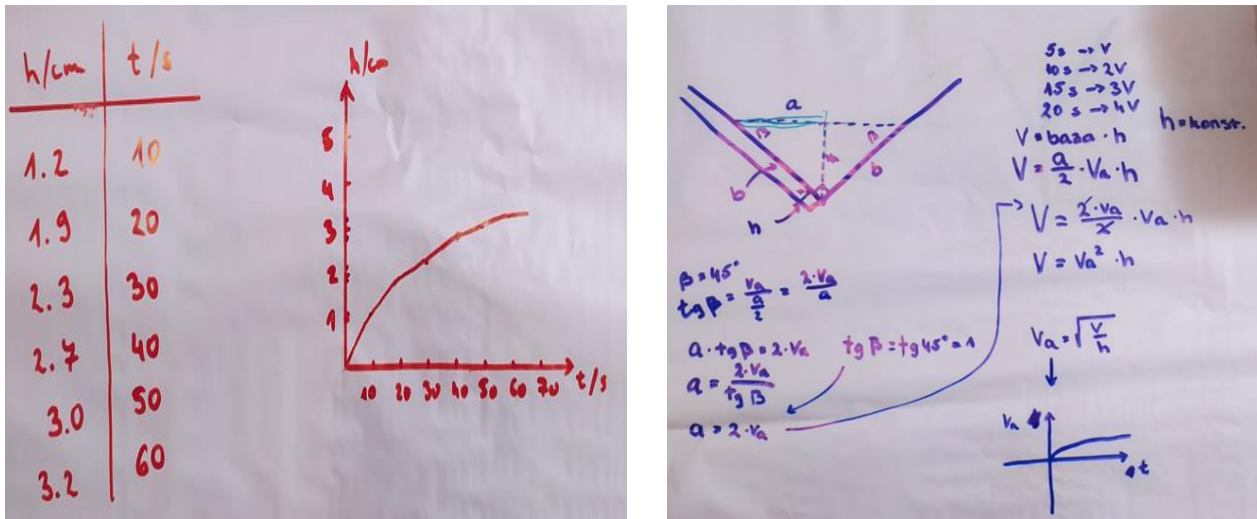 h/cm t/s
1.2 10
1.9 20
2.3 30
2.7 40
3.0 50
3.2 60
h/cm
5
4
3
2
1
10 20 30 40 50 60 70 t/s
a
β β
b b
h
β = 45°
tg β = va / (a/2) = 2·va / a
a · tg β = 2·va
tg β = tg 45° = 1
a = 2·va / tg β
a = 2·va
5s → V
10s → 2V
15s → 3V
20s → 4V
h = konst.
V = baza · h
V = a/2 · va · h
V = 2·va/2 · va · h
V = va² · h
va = √(V/h)
va
t